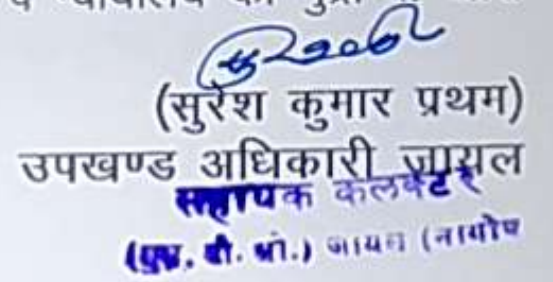 (सुरेश कुमार प्रथम)
उपखण्ड अधिकारी जायल
सहायक कलक्टर
(एस. डी. ओ.) जायल (नागौर